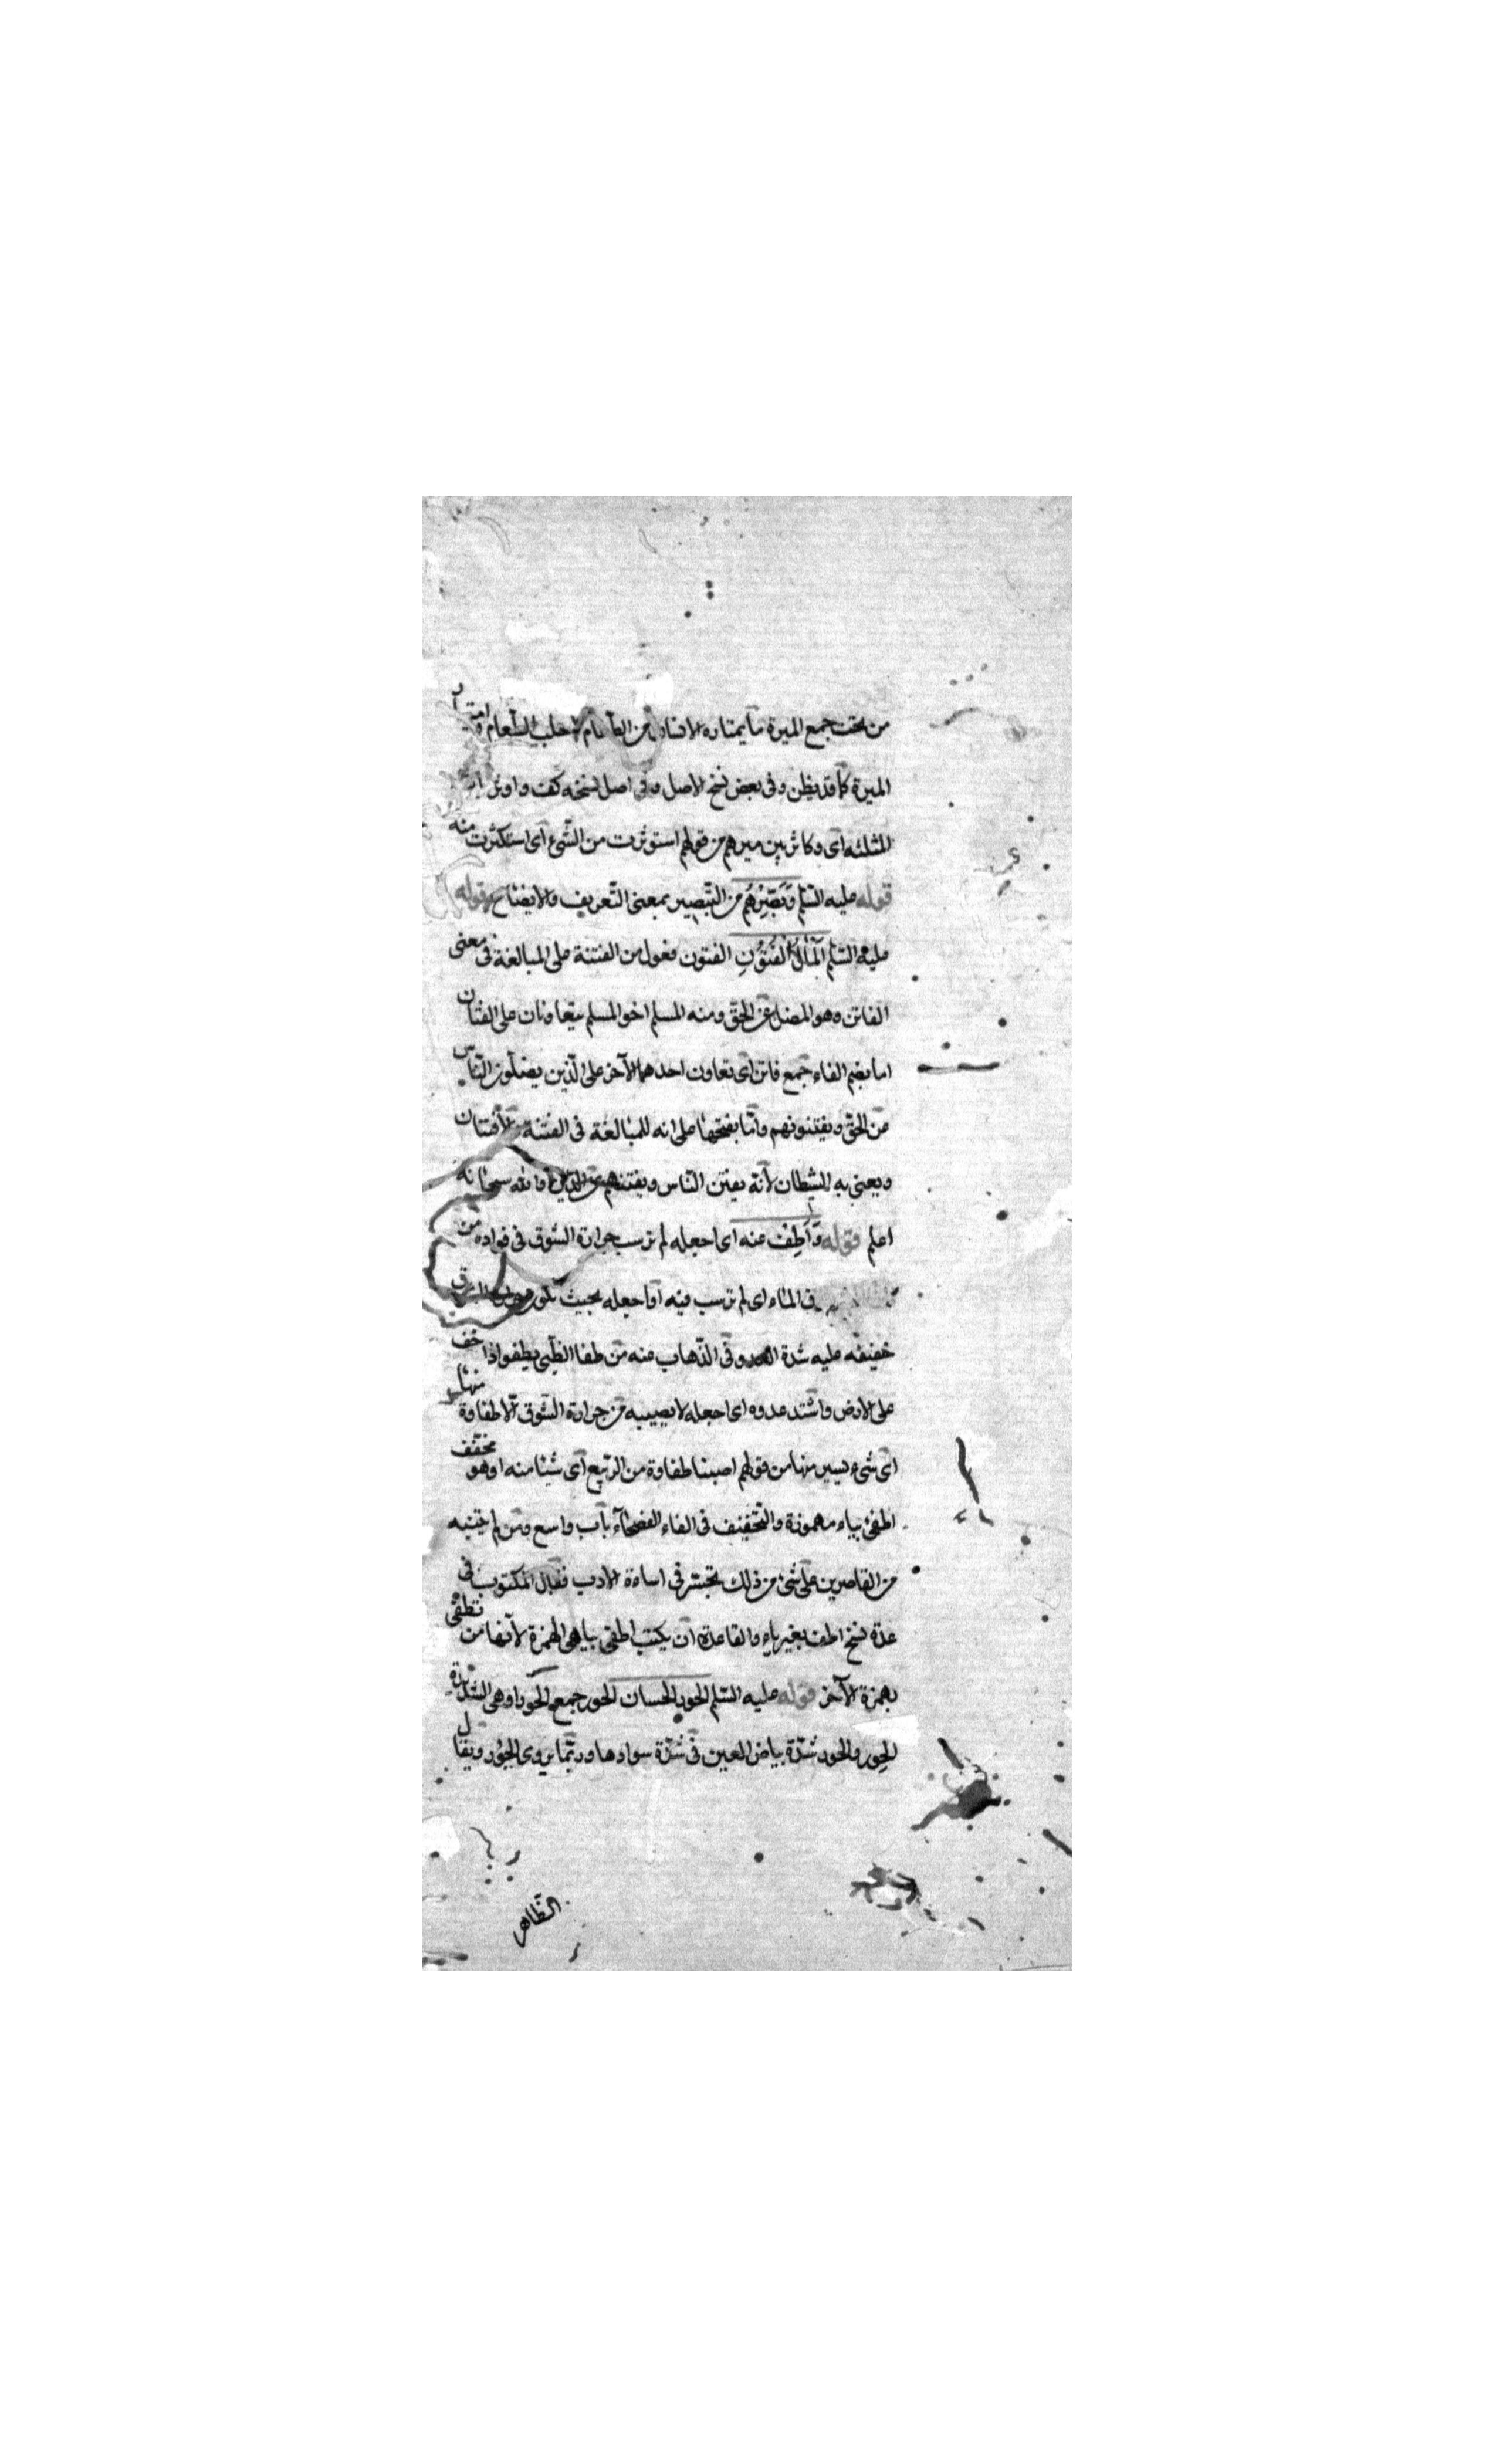 من تحت جمع الميرة ما يمتاره الانسان من الطعام لا جلب الطعام وامتيار
الميرة كما قد يظن وفى بعض نسخ الاصل وفى اصل نسخه كف واوثر
المثلثه اى وكاثر بين ميرهم من قولهم استوثرت من الشىء اى استكثرت منه
قوله عليه السلم وَبَصِّرْهُم من التبصير بمعنى التعريف والايضاح قوله
عليه السلم المال الفَتُونِ الفتون فعول من الفتنة على المبالغة فى معنى
الفاتن وهو المضل عن الحق ومنه المسلم اخو المسلم يتعاونان على الفتان
اما بضم الفاء جمع فاتن اى يعاون احدهما الآخر على الذين يضلون الناس
عن الحق ويفتنونهم واما بفتحها على انه للمبالغة فى الفتنة والافتتان
ويعنى به الشيطان لانه يفتن الناس ويفتنهم عن الدين والله سبحانه
اعلم قوله وَأَطِفْ عنه اى اجعله لم ترسب حرارة الشوق فى فواده من
فى الماء اى لم ترسب فيه او اجعله بحيث تكون حرارة الشوق
خفيفه عليه شدة العدو فى الذهاب عنه من طفا الظبى يطفو اذا خف
على الارض واشتد عدوه اى اجعله لا يصيبه من حرارة الشوق الا طفاوة منها
اى شىء يسير منها من قولهم اصبنا طفاوة من الربيع اى شيئا منه او هو مخفف
اطفئ بياء مهموزة والتخفيف فى الفاء الفصحاء باب واسع ومن لم يتنبه
من القاصرين على شئ من ذلك تجسر فى اساءة الادب فقال المكتوب فى
عدة نسخ اطف بغير ياء والقاعدة ان يكتب اطفى بياء هى الهمزة لانها من تطفى
بهمزة الآخر قوله عليه السلم الحور الحسان الحور جمع الحوراء وهى الشديدة
الحور والحور شدة بياض العين فى شدة سوادها وربما يروى الحؤر ويقال
الظاهر